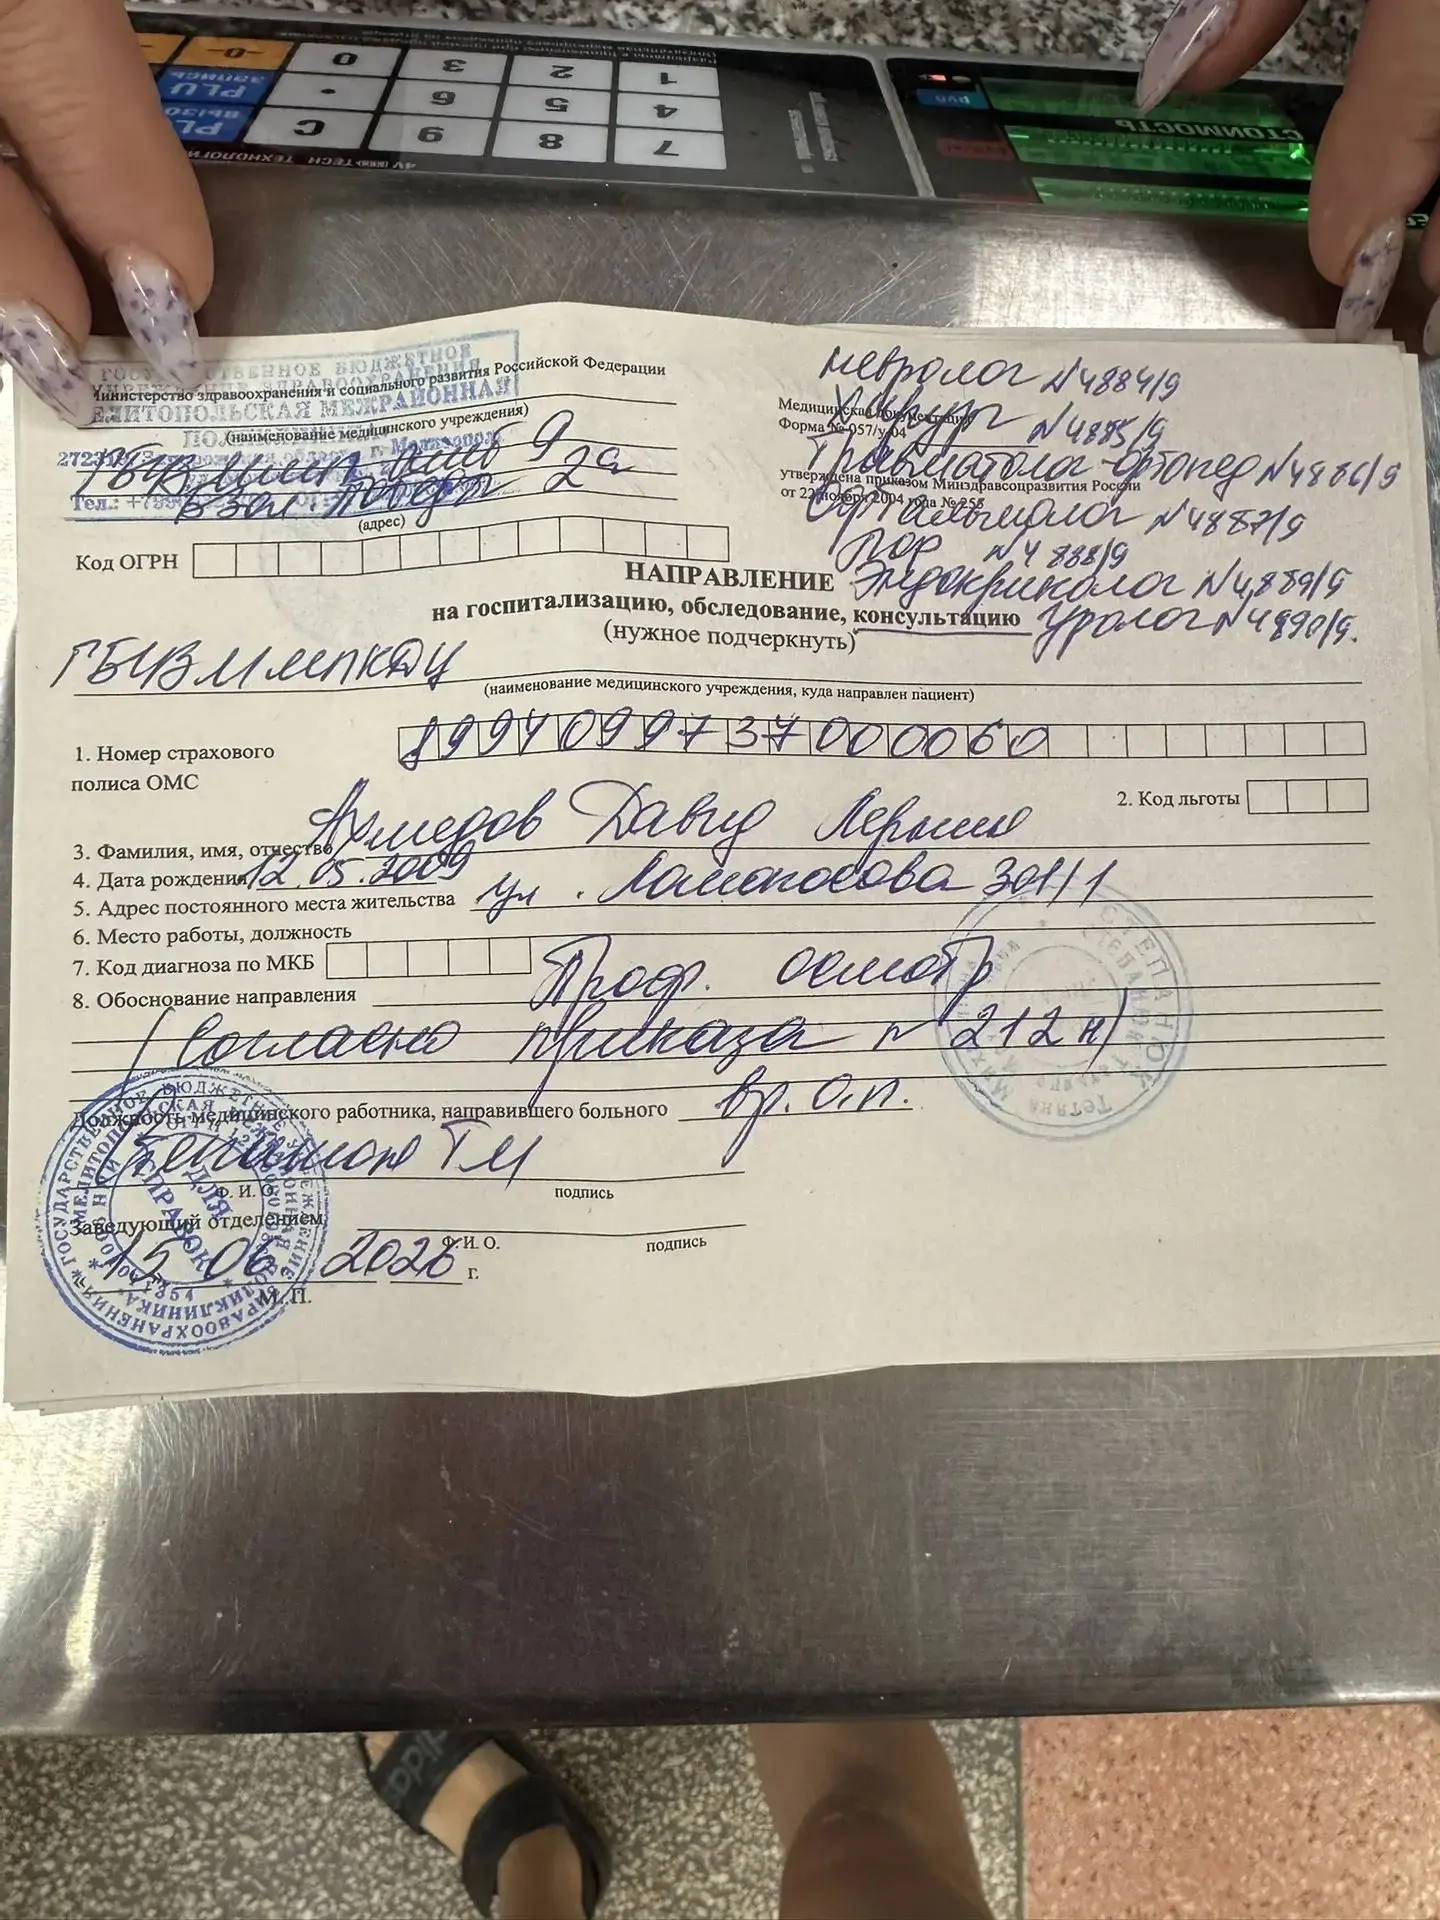 1 2 3 0
4 5 6 .
7 8 9 C
PLU
PLU
СТОИМОСТЬ
ГОСУДАРСТВЕННОЕ БЮДЖЕТНОЕ
УЧРЕЖДЕНИЕ ЗДРАВООХРАНЕНИЯ
МЕЛИТОПОЛЬСКАЯ МЕЖРАЙОННАЯ
Министерство здравоохранения и социального развития Российской Федерации
(наименование медицинского учреждения)
Тел.:
(адрес)
Код ОГРН
Медицинская документация
Форма № 057/у-04
утверждена приказом Минздравсоцразвития России
от 22 ноября 2004 года № 255
невролог N 4884/9
Хирург N 4885/9
Травматолог-ортопед N 4886/9
Офтальмолог N 4887/9
Лор N 4888/9
Эндокринолог N 4889/9
Уролог N 4890/9.
НАПРАВЛЕНИЕ
на госпитализацию, обследование, консультацию
(нужное подчеркнуть)
(наименование медицинского учреждения, куда направлен пациент)
1. Номер страхового полиса ОМС 8994099737000060
2. Код льготы
3. Фамилия, имя, отчество Ахмедов Давид
4. Дата рождения 12.05.2009
5. Адрес постоянного места жительства ул. Ломоносова 301/1
6. Место работы, должность
7. Код диагноза по МКБ
8. Обоснование направления Проф. осмотр
(Согласно приказа N 212н)
Должность медицинского работника, направившего больного вр. о.п.
Степанюк ТМ
Ф. И. О. подпись
Заведующий отделением
Ф. И. О. подпись
15 06 2026 г.
М. П.
ДЛЯ СПРАВОК
СТЕПАНЮК